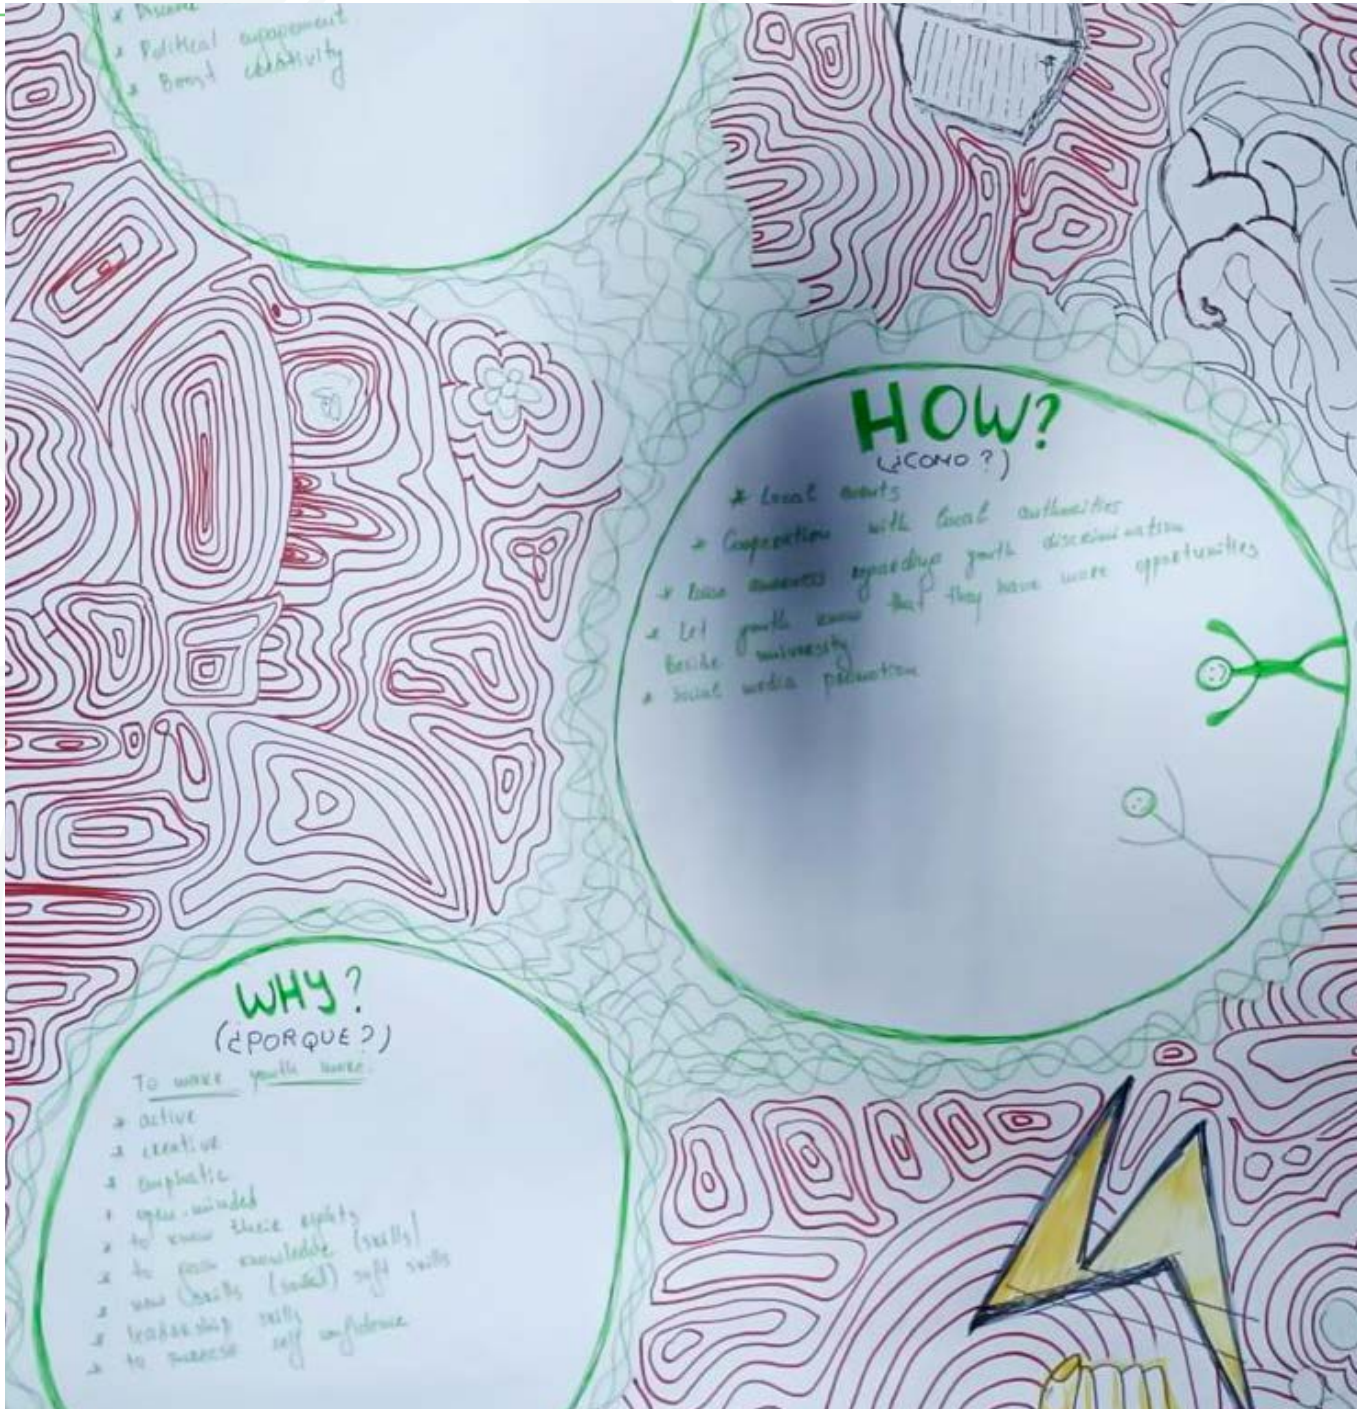 * Political engagement
* Boost creativity
HOW?
(¿COMO?)
* Local events
* Cooperation with local authorities
* Raise awareness regarding youth discrimination
* Let youth know that they have more opportunities
beside university
* Social media promotion
WHY?
(¿PORQUE?)
To make youth more:
* active
* creative
* emphatic
* open-minded
* to know their rights
* to gain knowledge (skills)
* new skills (social) soft skills
* leadership skills
* to increase self confidence